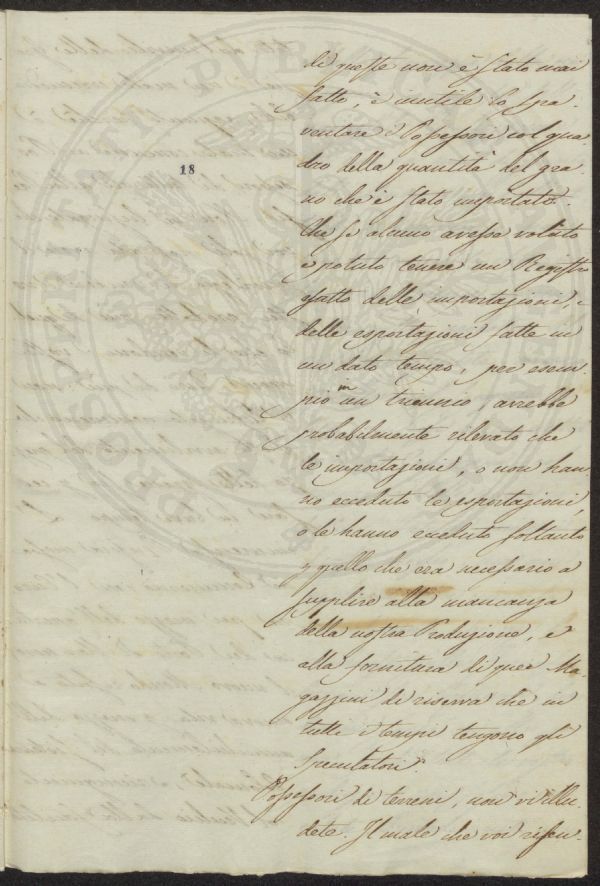 di queste non è stato mai
fatto, è inutile lo spa-
ventare i Possessori col qua-
dro della quantità del gra-
no che è stato importato.
Che se alcuno avesse voluto
e potuto tenere un Registro
esatto delle importazioni, e
delle esportazioni fatte in
un dato tempo, per esem-
pio in un triennio, avrebbe
probabilmente rilevato che
le importazioni, o non han-
no ecceduto le esportazioni,
o le hanno ecceduto soltanto
p quello che era necessario a
supplire alla mancanza
della nostra Produzione, e
alla fornitura di quei Ma-
gazzini di riserva che in
tutti i tempi tengono gli
speculatori.
Possessori di terreni, non vi illu-
dete. Il male che voi risen-
18
PROSPERITATI PVBLICAE